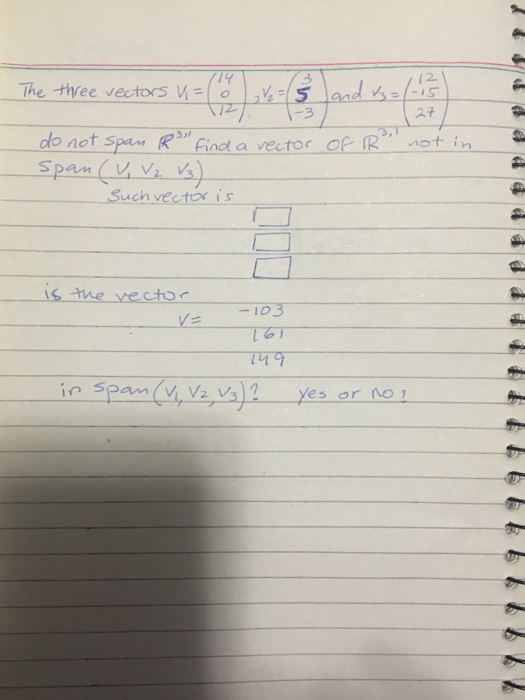 The three vectors V₁ = (14 0 12), V₂ = (3 5 -3) and V₃ = (12 -15 27)
do not span ℝ³,¹ find a vector of ℝ³,¹ not in
span (V₁ V₂ V₃)
Such vector is
is the vector
V= -103
161
149
in span (V₁, V₂, V₃)? yes or no?